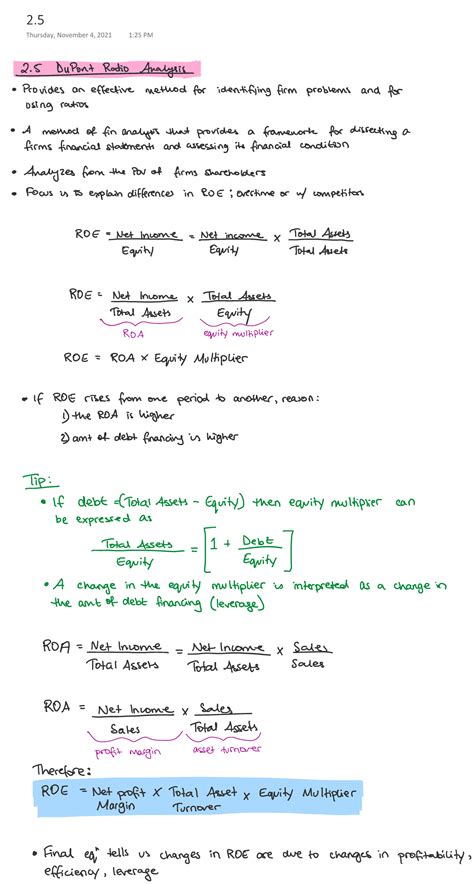 2.5
Thursday, November 4, 2021 1:25 PM
2.5 DuPont Ratio Analysis
• Provides an effective method for identifying firm problems and for
using ratios
• A method of fin analysis that provides a framework for dissecting a
firms financial statements and assessing its financial condition
• Analyzes from the POV of firms shareholders
• Focus is to explain differences in ROE ; overtime or w/ competitors
ROE = Net Income / Equity = Net income / Equity × Total Assets / Total Assets
ROE = Net Income / Total Assets × Total Assets / Equity
ROA equity multiplier
ROE = ROA × Equity Multiplier
• If ROE rises from one period to another, reason:
1) the ROA is higher
2) amt of debt financing is higher
Tip:
• If debt = (Total Assets - Equity) then equity multiplier can
be expressed as
Total Assets / Equity = [1 + Debt / Equity]
• A change in the equity multiplier is interpreted as a change in
the amt of debt financing (leverage)
ROA = Net Income / Total Assets = Net Income / Total Assets × Sales / Sales
ROA = Net Income / Sales × Sales / Total Assets
profit margin asset turnover
Therefore:
ROE = Net profit Margin × Total Asset Turnover × Equity Multiplier
• Final eqⁿ tells us changes in ROE are due to changes in profitability,
efficiency, leverage